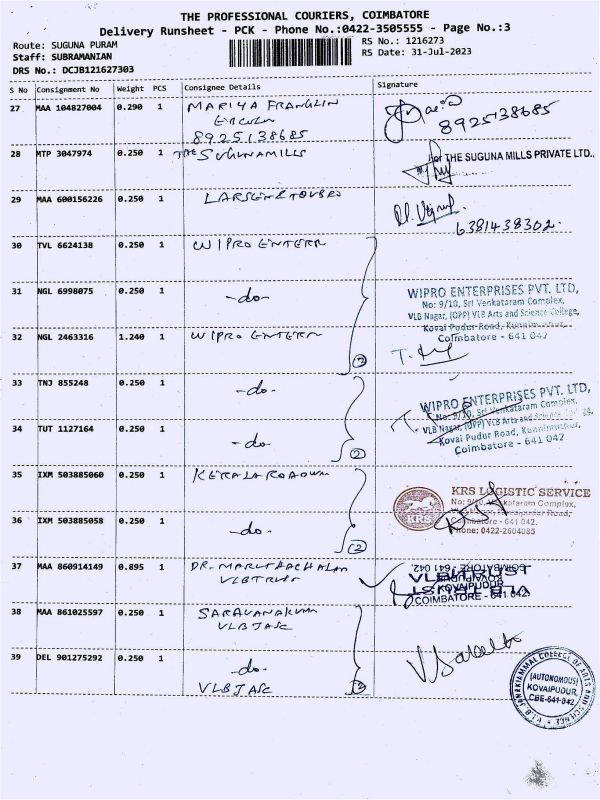 THE PROFESSIONAL COURIERS, COIMBATORE
Delivery Runsheet - PCK - Phone No.:0422-3505555 - Page No.:3
Route: SUGUNA PURAM
RS No.: 1216273
Staff: SUBRAMANIAN
RS Date: 31-Jul-2023
DRS No.: DCJB121627303
S No Consignment No Weight PCS Consignee Details Signature
27 MAA 104827004 0.290 1 MARIYA FRANGLIN
8925138685
8925138685
28 MTP 3047974 0.250 1 THE SUGUNA MILLS
For THE SUGUNA MILLS PRIVATE LTD.,
29 MAA 600156226 0.250 1 LARSEN & TOUBRO
6381438302.
30 TVL 6624138 0.250 1 WIPRO ENTERR
31 NGL 6998075 0.250 1 -do-
WIPRO ENTERPRISES PVT. LTD,
No: 9/10, Sri Venkataram Complex,
VLB Nagar, (OPP) VLB Arts and Science College,
Kovai Pudur Road, Kunnimuthur,
Coimbatore - 641 042
32 NGL 2463316 1.240 1 WIPRO ENTERR
2
33 TNJ 855248 0.250 1 -do-
WIPRO ENTERPRISES PVT. LTD,
No: 9/10, Sri Venkataram Complex,
VLB Nagar, (OPP) VLB Arts and Science
Kovai Pudur Road, Kunnimuthur,
Coimbatore - 641 042
34 TUT 1127164 0.250 1 -do-
2
35 IXM 503885060 0.250 1 KERALA ROADWA
KRS LOGISTIC SERVICE
No: 9/10, Venkataram Complex,
Kovaipudur Road,
Coimbatore - 641 042.
Phone: 0422-2604085
KRS
36 IXM 503885058 0.250 1 -do-
2
37 MAA 860914149 0.895 1 DR. MARUTHACHALAM
VLB TRUST
VLB TRUST
KOVAIPUDUR
COIMBATORE - 641 042.
38 MAA 861025597 0.250 1 SARAVANAKUM
VLB JASC
39 DEL 901275292 0.250 1 -do-
VLB JASC
2
V.L.B. JANAKIAMMAL COLLEGE OF ARTS AND SCIENCE
(AUTONOMOUS)
KOVAIPUDUR,
CBE-641 042